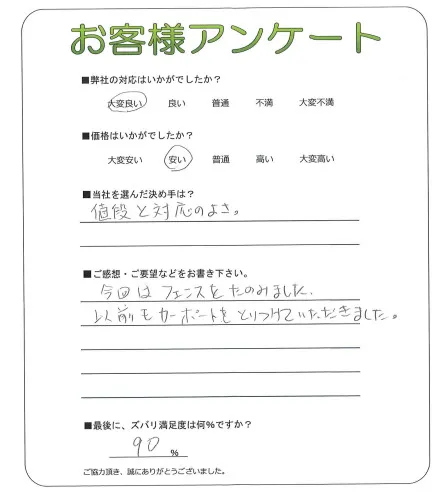 お客様アンケート
■弊社の対応はいかがでしたか？
大変良い 良い 普通 不満 大変不満
■価格はいかがでしたか？
大変安い 安い 普通 高い 大変高い
■当社を選んだ決め手は？
値段と対応のよさ。
■ご感想・ご要望などをお書き下さい。
今回はフェンスをたのみました.
以前もカーポートをとりつけていただきました。
■最後に、ズバリ満足度は何％ですか？
90 %
ご協力頂き、誠にありがとうございました。